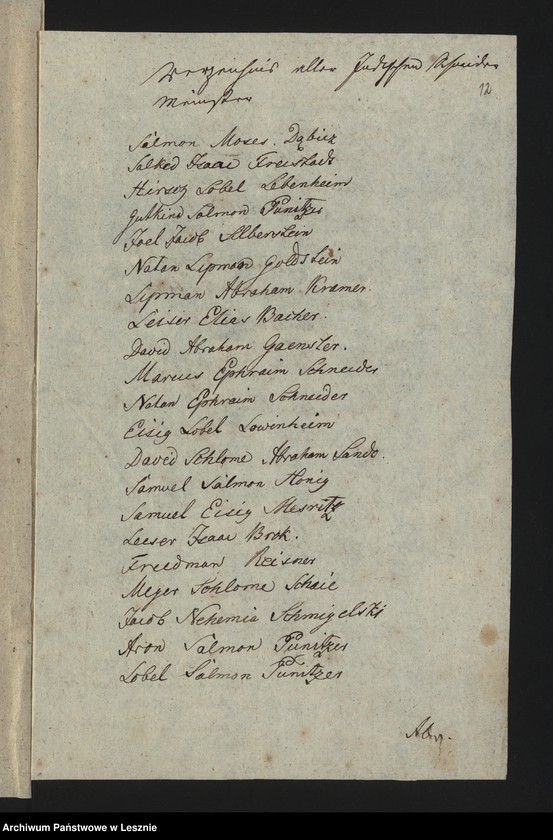 Verzeichnis aller Judischen Schneider
Meister
12
Salmon Moses. Dąbicz
Salked Isaac Freistadt
Hirsog Lobel Lebenheim
Gutkind Salmon Punitzer
Joel Jacob Alberstein
Natan Lipman Goldstein
Lipman Abraham Kramer.
Leiser Elias Bacher.
David Abraham Gaensler.
Marcus Ephraim Schneider
Natan Ephraim Schneider
Eisig Lobel Lowinheim
David Schlome Abraham Sando.
Samuel Salmon Honig
Samuel Eisig Mesritz
Leeser Isaac Brok.
Freedman Reisner
Meyer Schlome Schaie
Jacob Nehemia Schmigelski
Aron Salmon Punitzer
Lobel Salmon Punitzer
Archiwum Państwowe w Lesznie